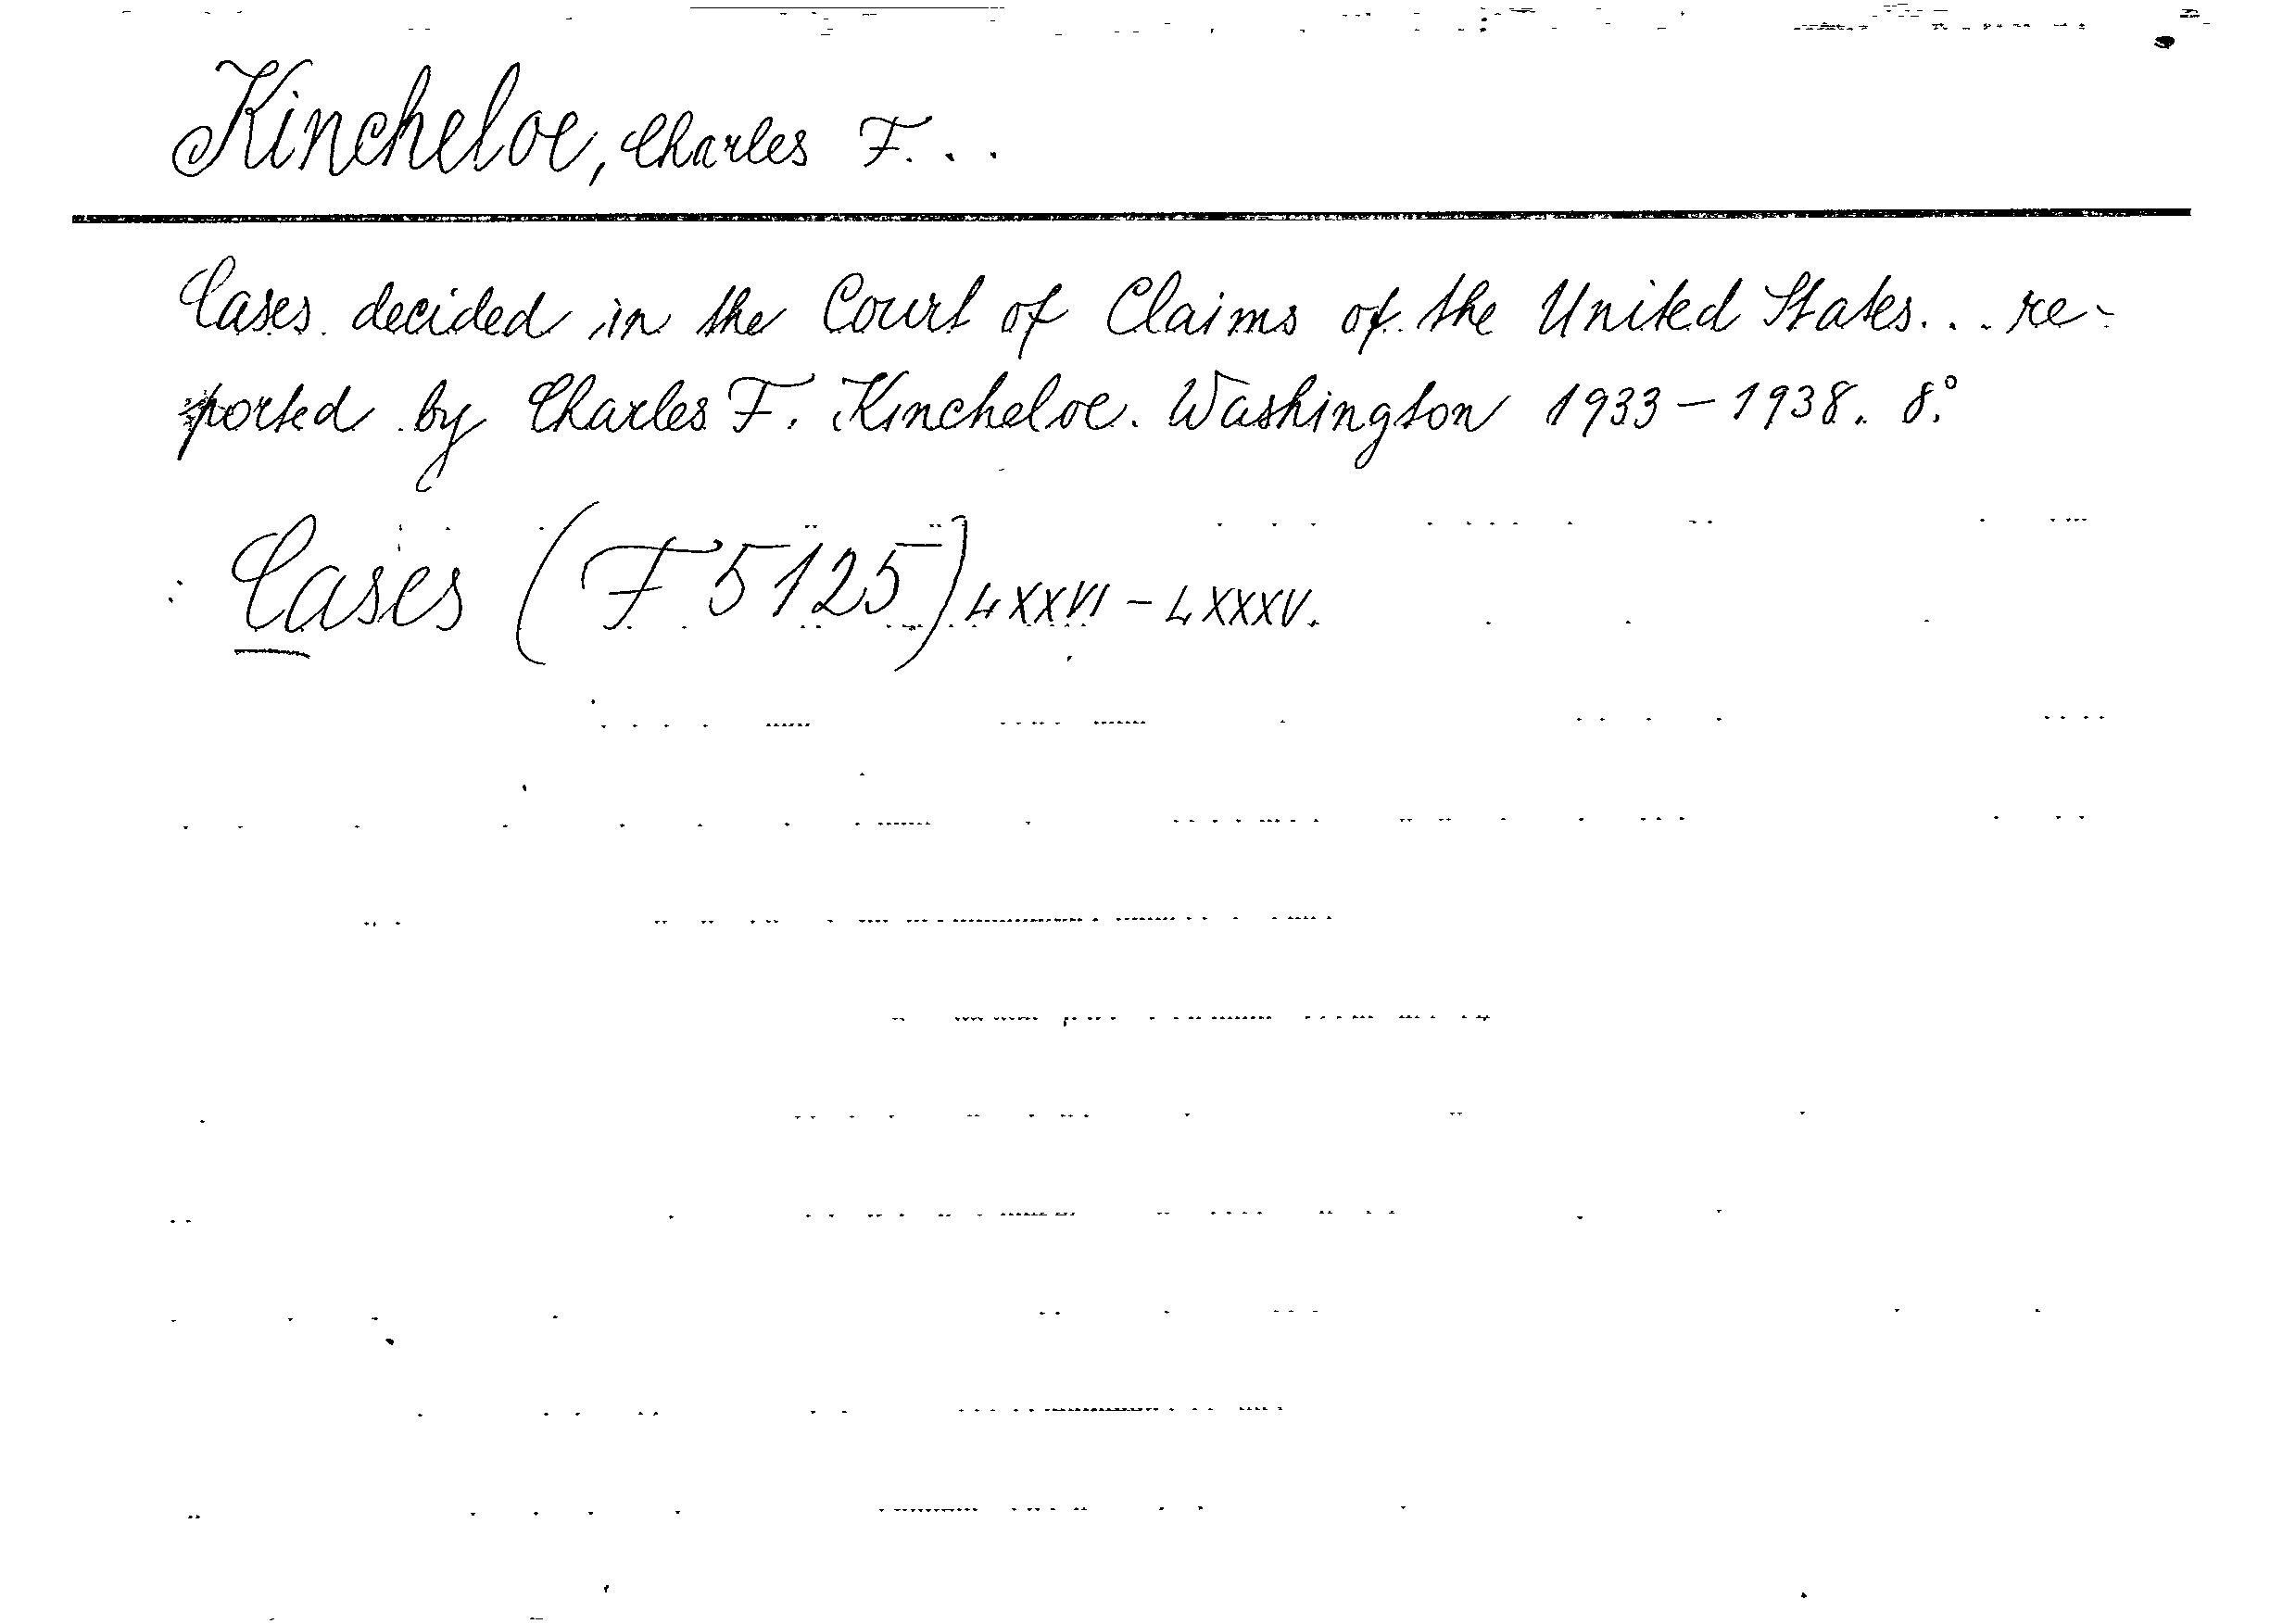 Kincheloe, Charles F...
Cases decided in the Court of Claims of the United States... re-
ported by Charles F. Kincheloe. Washington 1933 – 1938. 8.°
: Cases (F 5125) LXXVI – LXXXV.